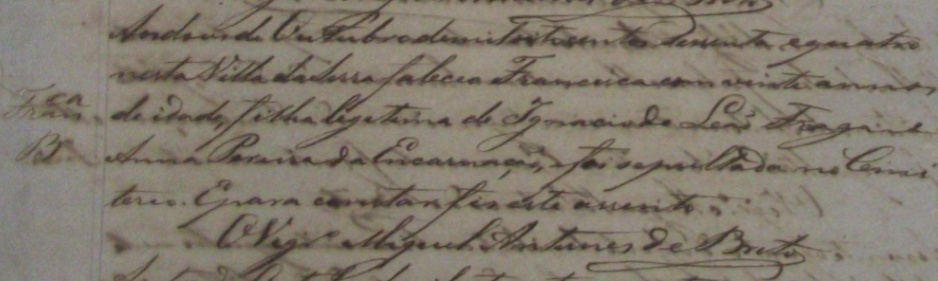 de Outubro de mil oito centos sessenta e quatro
nesta Villa da Serra faleceo Francisca com vinte annos
Fran.ca
de idade, filha legitima de Ignacio de Leão Fraga e
B.
Anna Pereira da Encarnação, foi sepultada no Cemi
terio. E para constar fis este assento.
O Vigr.º Miguel Antunes de Brito